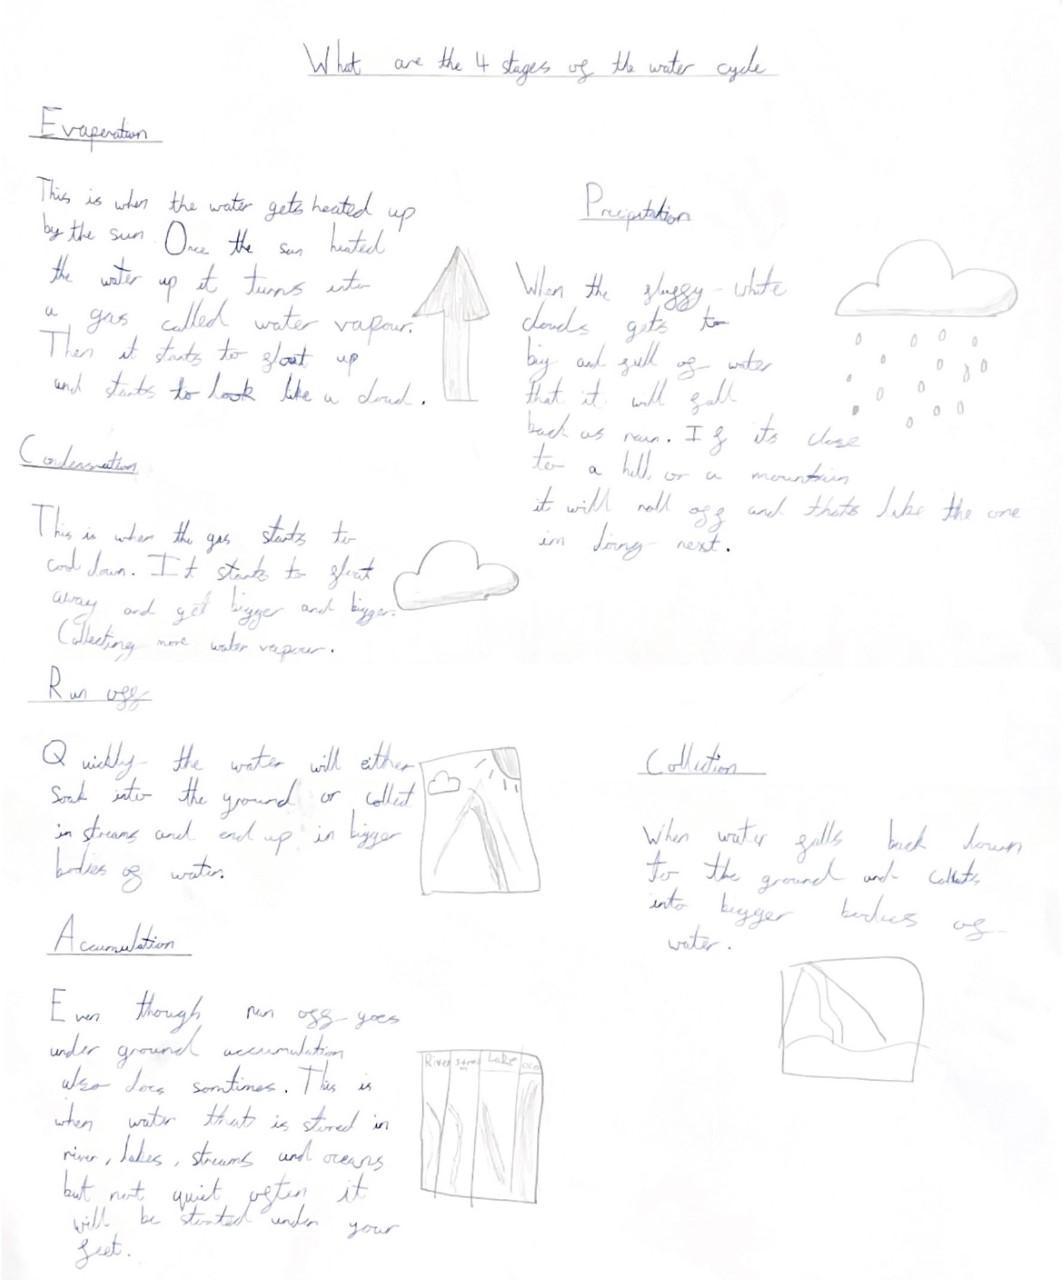 What are the 4 stages of the water cycle
Evaperation
This is when the water gets heated up
by the sun. Once the sun heated
the water up it turns into
a gas called water vapour.
Then it starts to float up
and starts to look like a cloud.
Precipitation
When the fluffy white
clouds gets to
big and full of water
that it will fall
back as rain. If its close
to a hill or a mountain
it will roll off and thats like the one
im doing next.
Condensation
This is when the gas starts to
cool down. It starts to float
away and get bigger and bigger.
Collecting more water vapour.
Run off
Quickly the water will either
Soak into the ground or collect
in streams and end up in bigger
bodies of water.
Collection
When water falls back down
to the ground and collects
into bigger bodies of
water.
Accumulation
Even though run off goes
under ground accumulation
also does somtimes. This is
when water that is stored in
river, lakes, streams and oceans
but not quiet often it
will be storted under your
feet.
River Stream Lake